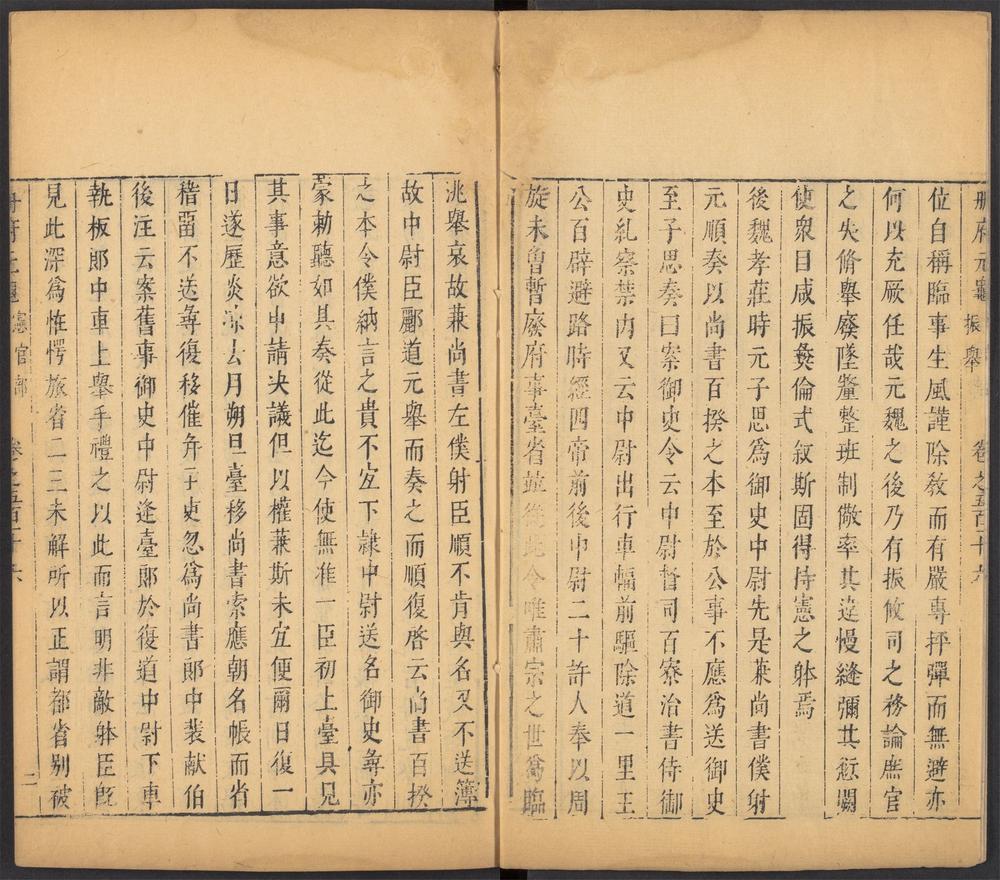 冊府元龜 振舉 卷之五百十六
位自稱臨事生風謹除教而有嚴專抨彈而無避亦
何以充厥任哉元魏之後乃有振攸司之務論庶官
之失脩舉廢墜釐整班制儆率其違慢縫彌其愆闕
使衆目咸振彜倫式叙斯固得持憲之躰焉
後魏孝莊時元子思爲御史中尉先是兼尚書僕射
元順奏以尚書百揆之本至於公事不應爲送御史
至子思奏曰案御史令云中尉督司百寮治書侍御
史糺察禁内又云中尉出行車幅前驅除道一里王
公百辟避路時經四帝前後中尉二十許人奉以周
旋未曾暫廢府事臺省並從此令唯肅宗之世爲臨
洮舉哀故兼尚書左僕射臣順不肯與名又不送簿
故中尉臣酈道元舉而奏之而順復啓云尚書百揆
之本令僕納言之貴不宜下隷中尉送名御史尋亦
蒙勅聽如其奏從此迄今使無准一臣初上臺具見
其事意欲申請决議但以權兼斯未宜便爾日復一
日遂歷炎凉去月朔旦臺移尚書索應朝名帳而省
稽畱不送尋復移催并主吏忽爲尚書郎中裴献伯
後注云案舊事御史中尉逢臺郎於復道中尉下車
執板郎中車上舉手禮之以此而言明非敵躰臣旣
見此深爲恠愕旅省二三未解所以正謂都省别被
冊府元龜 憲官部 卷之五百十六 二